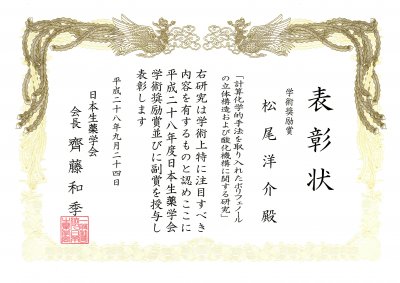 表彰状
学術奨励賞
松尾洋介殿
「計算化学的手法を取り入れたポリフェノール
の立体構造および酸化機構に関する研究」
右研究は学術上特に注目すべき
内容を有するものと認めここに
平成二十八年度日本生薬学会
学術奨励賞並びに副賞を授与し
表彰します
平成二十八年九月二十四日
日本生薬学会
会長 齊藤和季